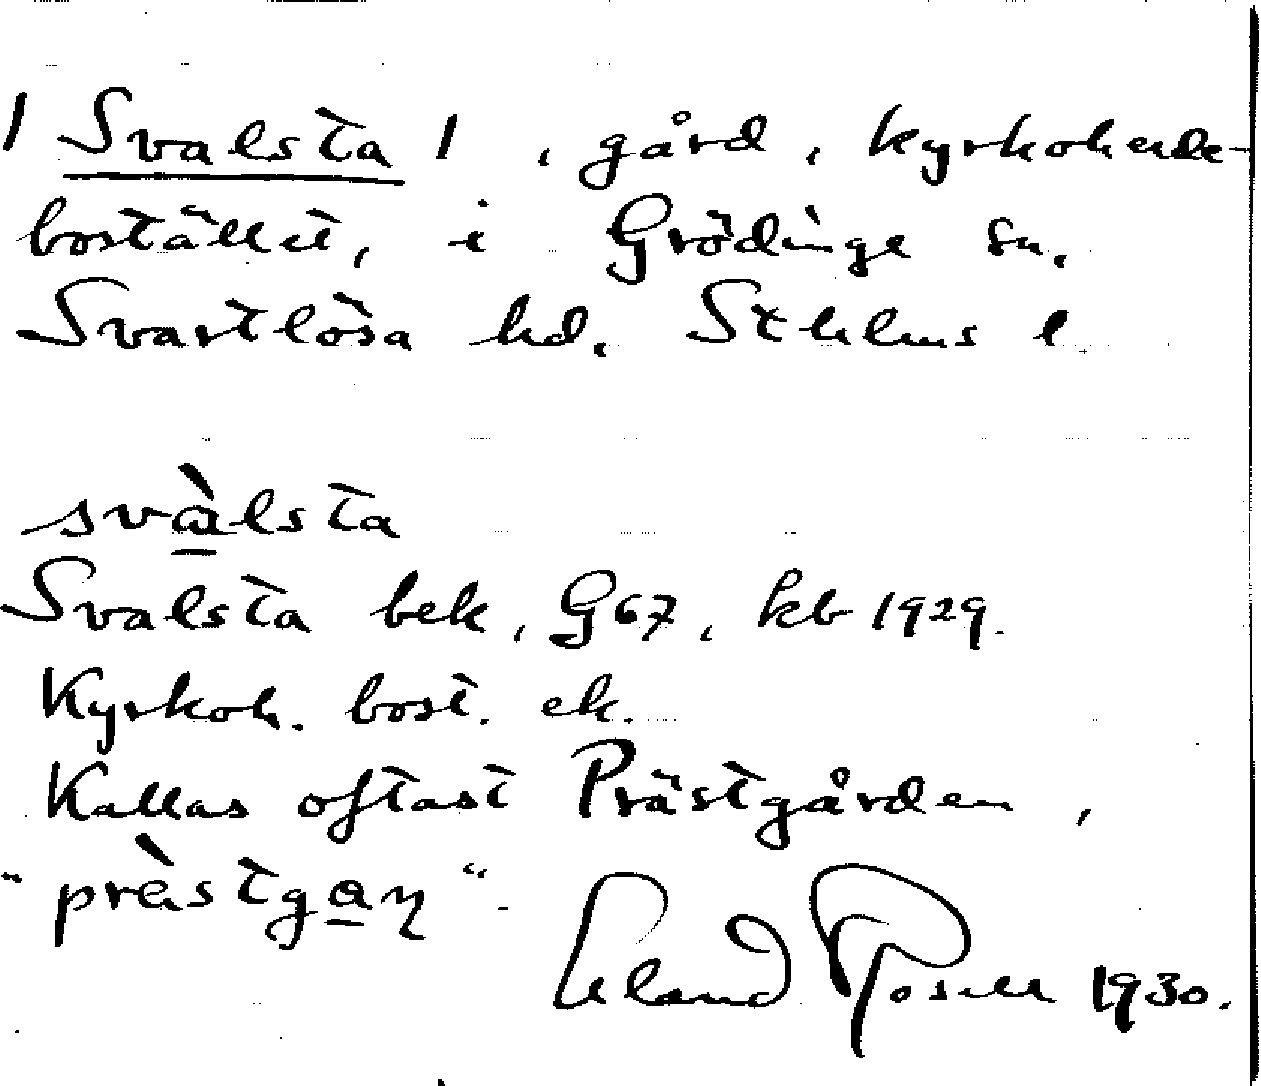 / Svalsta /, gård, kyrkoherde-
bostället, i Grödinge sn.
Svartlösa hd. Sthlms l.
svàlsta
Svalsta bek, G67, kb 1929.
Kyrkoh. bost. ek.
Kallas oftast Prästgården,
"prèstgaɳ"
Erland Rosell 1930.